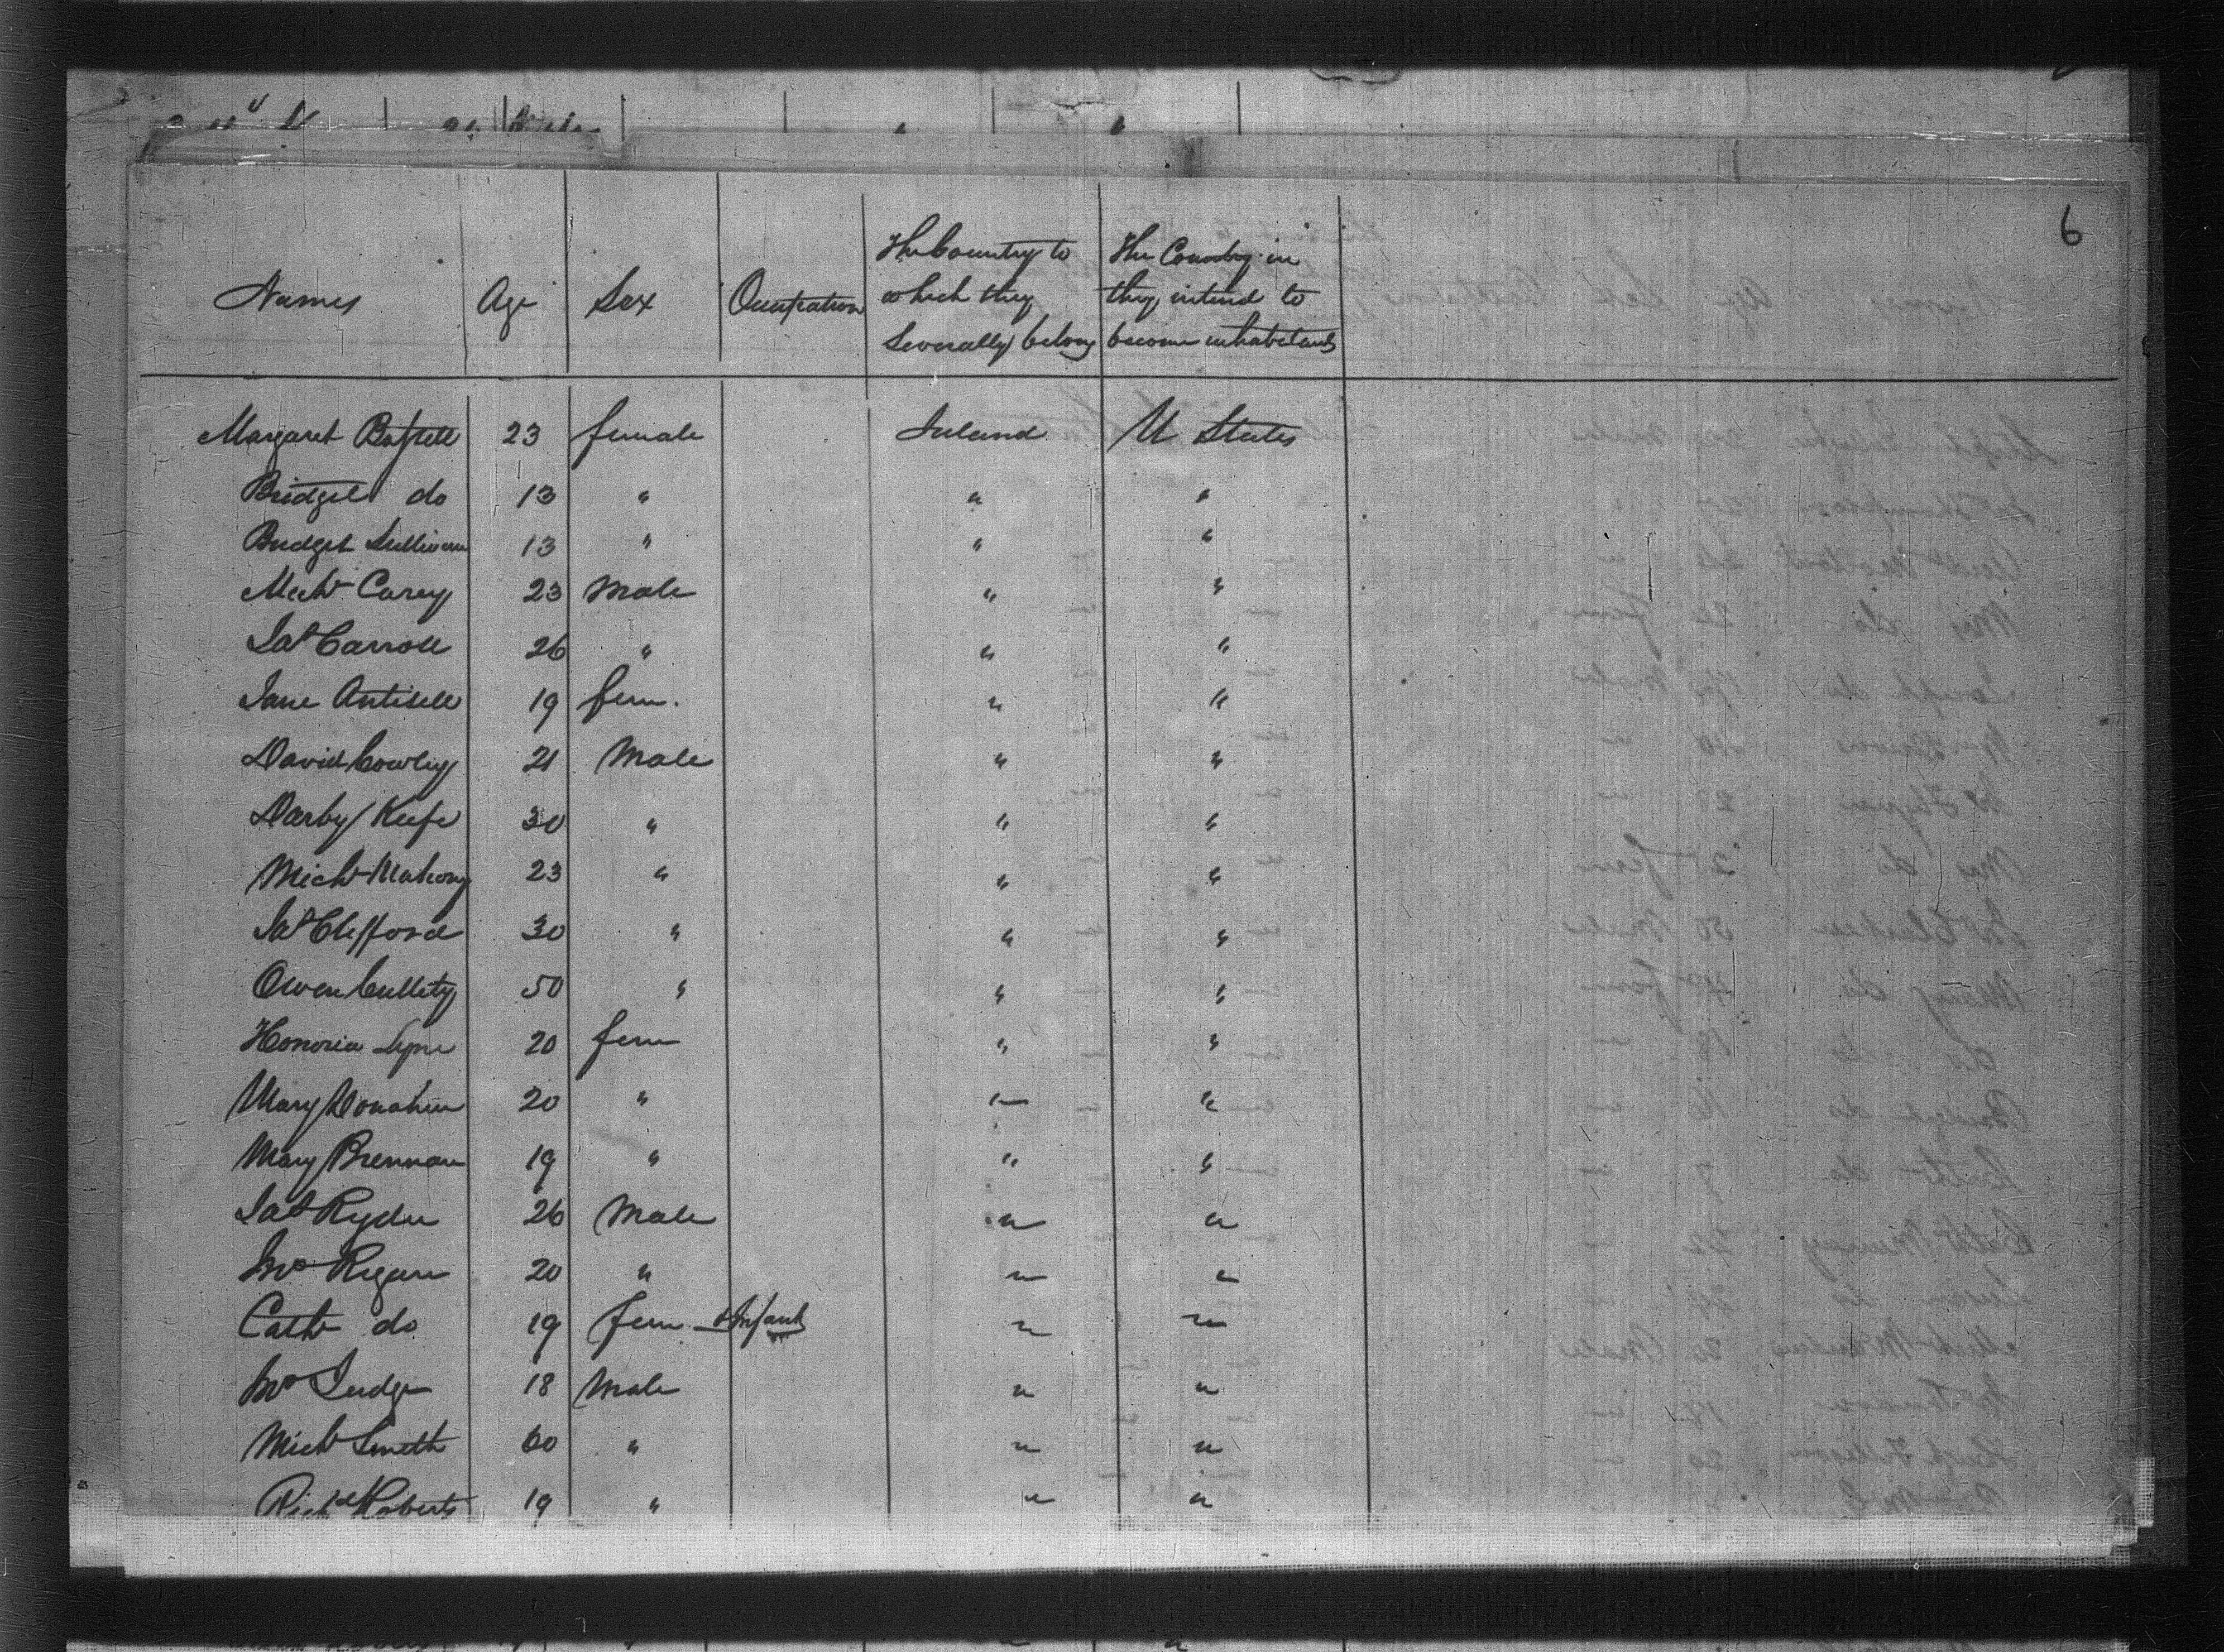 6
Names Age Sex Occupation The Country to which they Severally belong The Country in they intend to become inhabitants
Margaret 23 female Ireland U States
Bridget do 13 " " "
Bridget Sullivan 13 " " "
Michl Carey 23 Male " "
Jas Carroll 26 " " "
Jane Antisell 19 fem. " "
David Cowley 21 Male " "
Darby Keefe 30 " " "
Michl Mahony 23 " " "
Jas Clifford 30 " " "
Owen Cullety 50 " " "
Honoria Lyne 20 fem " "
Mary Donahue 20 " " "
Mary Brennan 19 " " "
Jas Ryder 26 Male " "
Jno Regan 20 " " "
Cath do 19 fem & Infant " "
Jno Judge 18 Male " "
Michl Smith 60 " " "
Richd Roberts 19 " " "